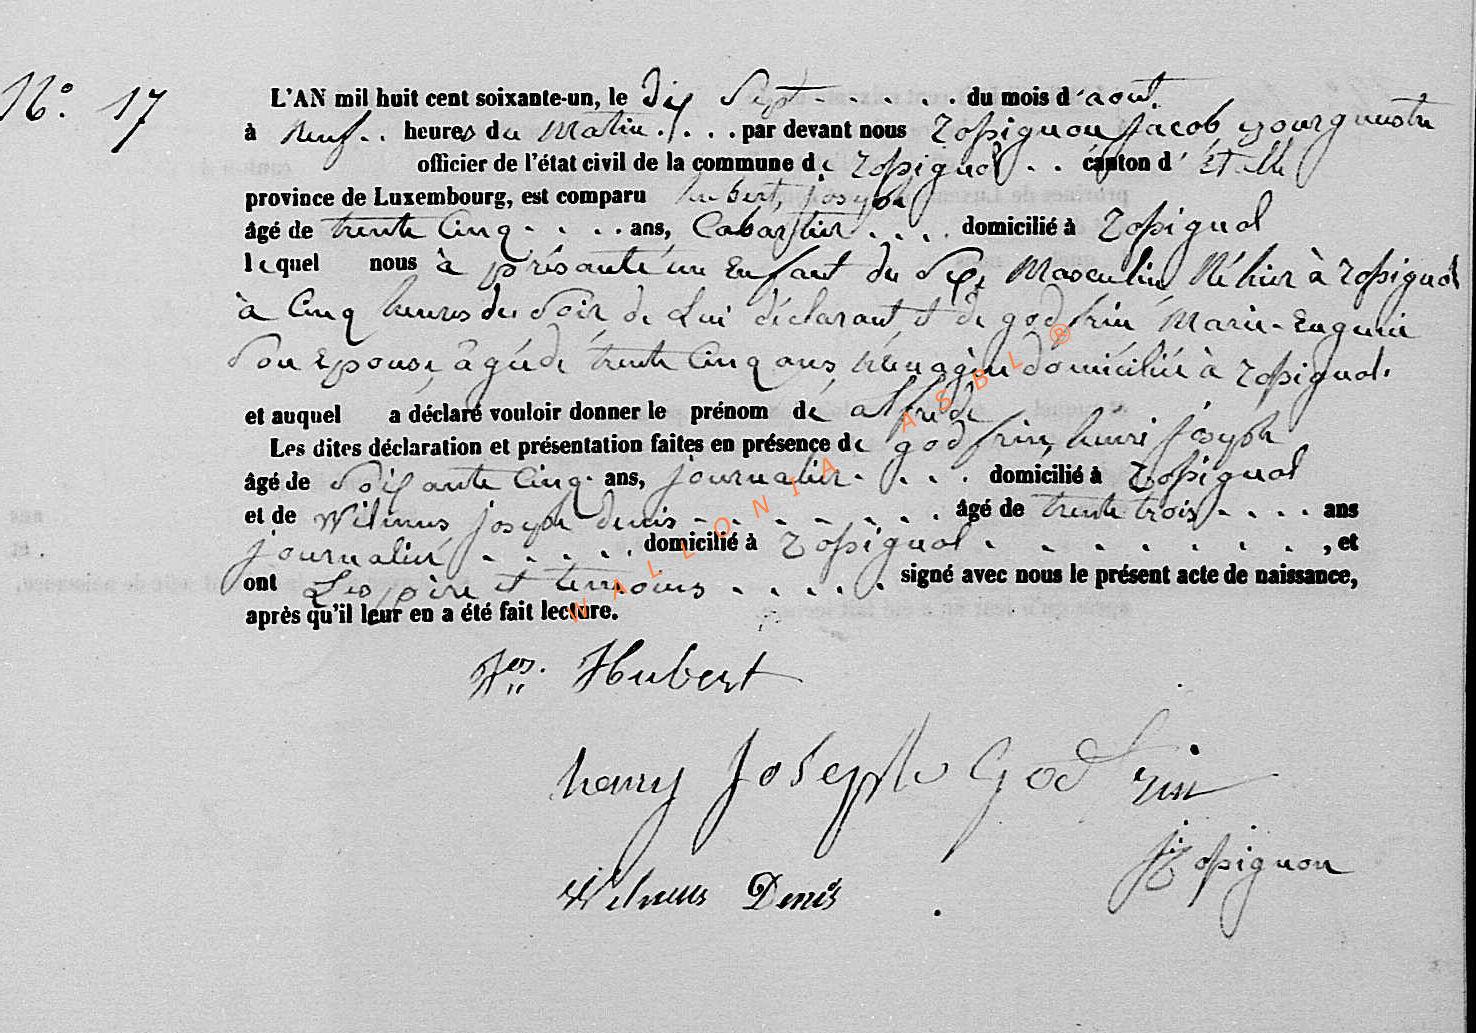 N.° 17
L'AN mil huit cent soixante-un, le dix Sept . . . . . . du mois d'aout.
à Neuf . . heures du Matin . . . . par devant nous Rossignon Jacob Bourguestre
officier de l'état civil de la commune de Rossignol . . canton d' Étalle
province de Luxembourg, est comparu hubert, Joseph
âgé de trente Cinq . . . . ans, Cabartier . . . . domicilié à Rossignol
lequel nous à présanté un Enfant du Sexe Masculin, Né hier à Rossignol
à Cinq heures du Soir, de Lui déclarant, et de godfrin Marie-Eugenie
Son Epouse, âgée de trente Cinq ans, ménagère domiciliée à Rossignol.
et auquel a déclaré vouloir donner le prénom de alfrede
Les dites déclaration et présentation faites en présence de godfrin, henri Joseph
âgé de Soixante Cinq ans, journalier . . . . domicilié à Rossignol
et de Wilmus, joseph denis . . . . . . . âgé de trente trois . . . . ans
journalier . . . . . domicilié à Rossignol . . . . . . . , et
ont Les père et temoins . . . . . signé avec nous le présent acte de naissance,
après qu'il leur en a été fait lecture.
WALLONIA ASBL ®
Jos. Hubert
henry Joseph God frin
J Rossignon
Wilmus Denis